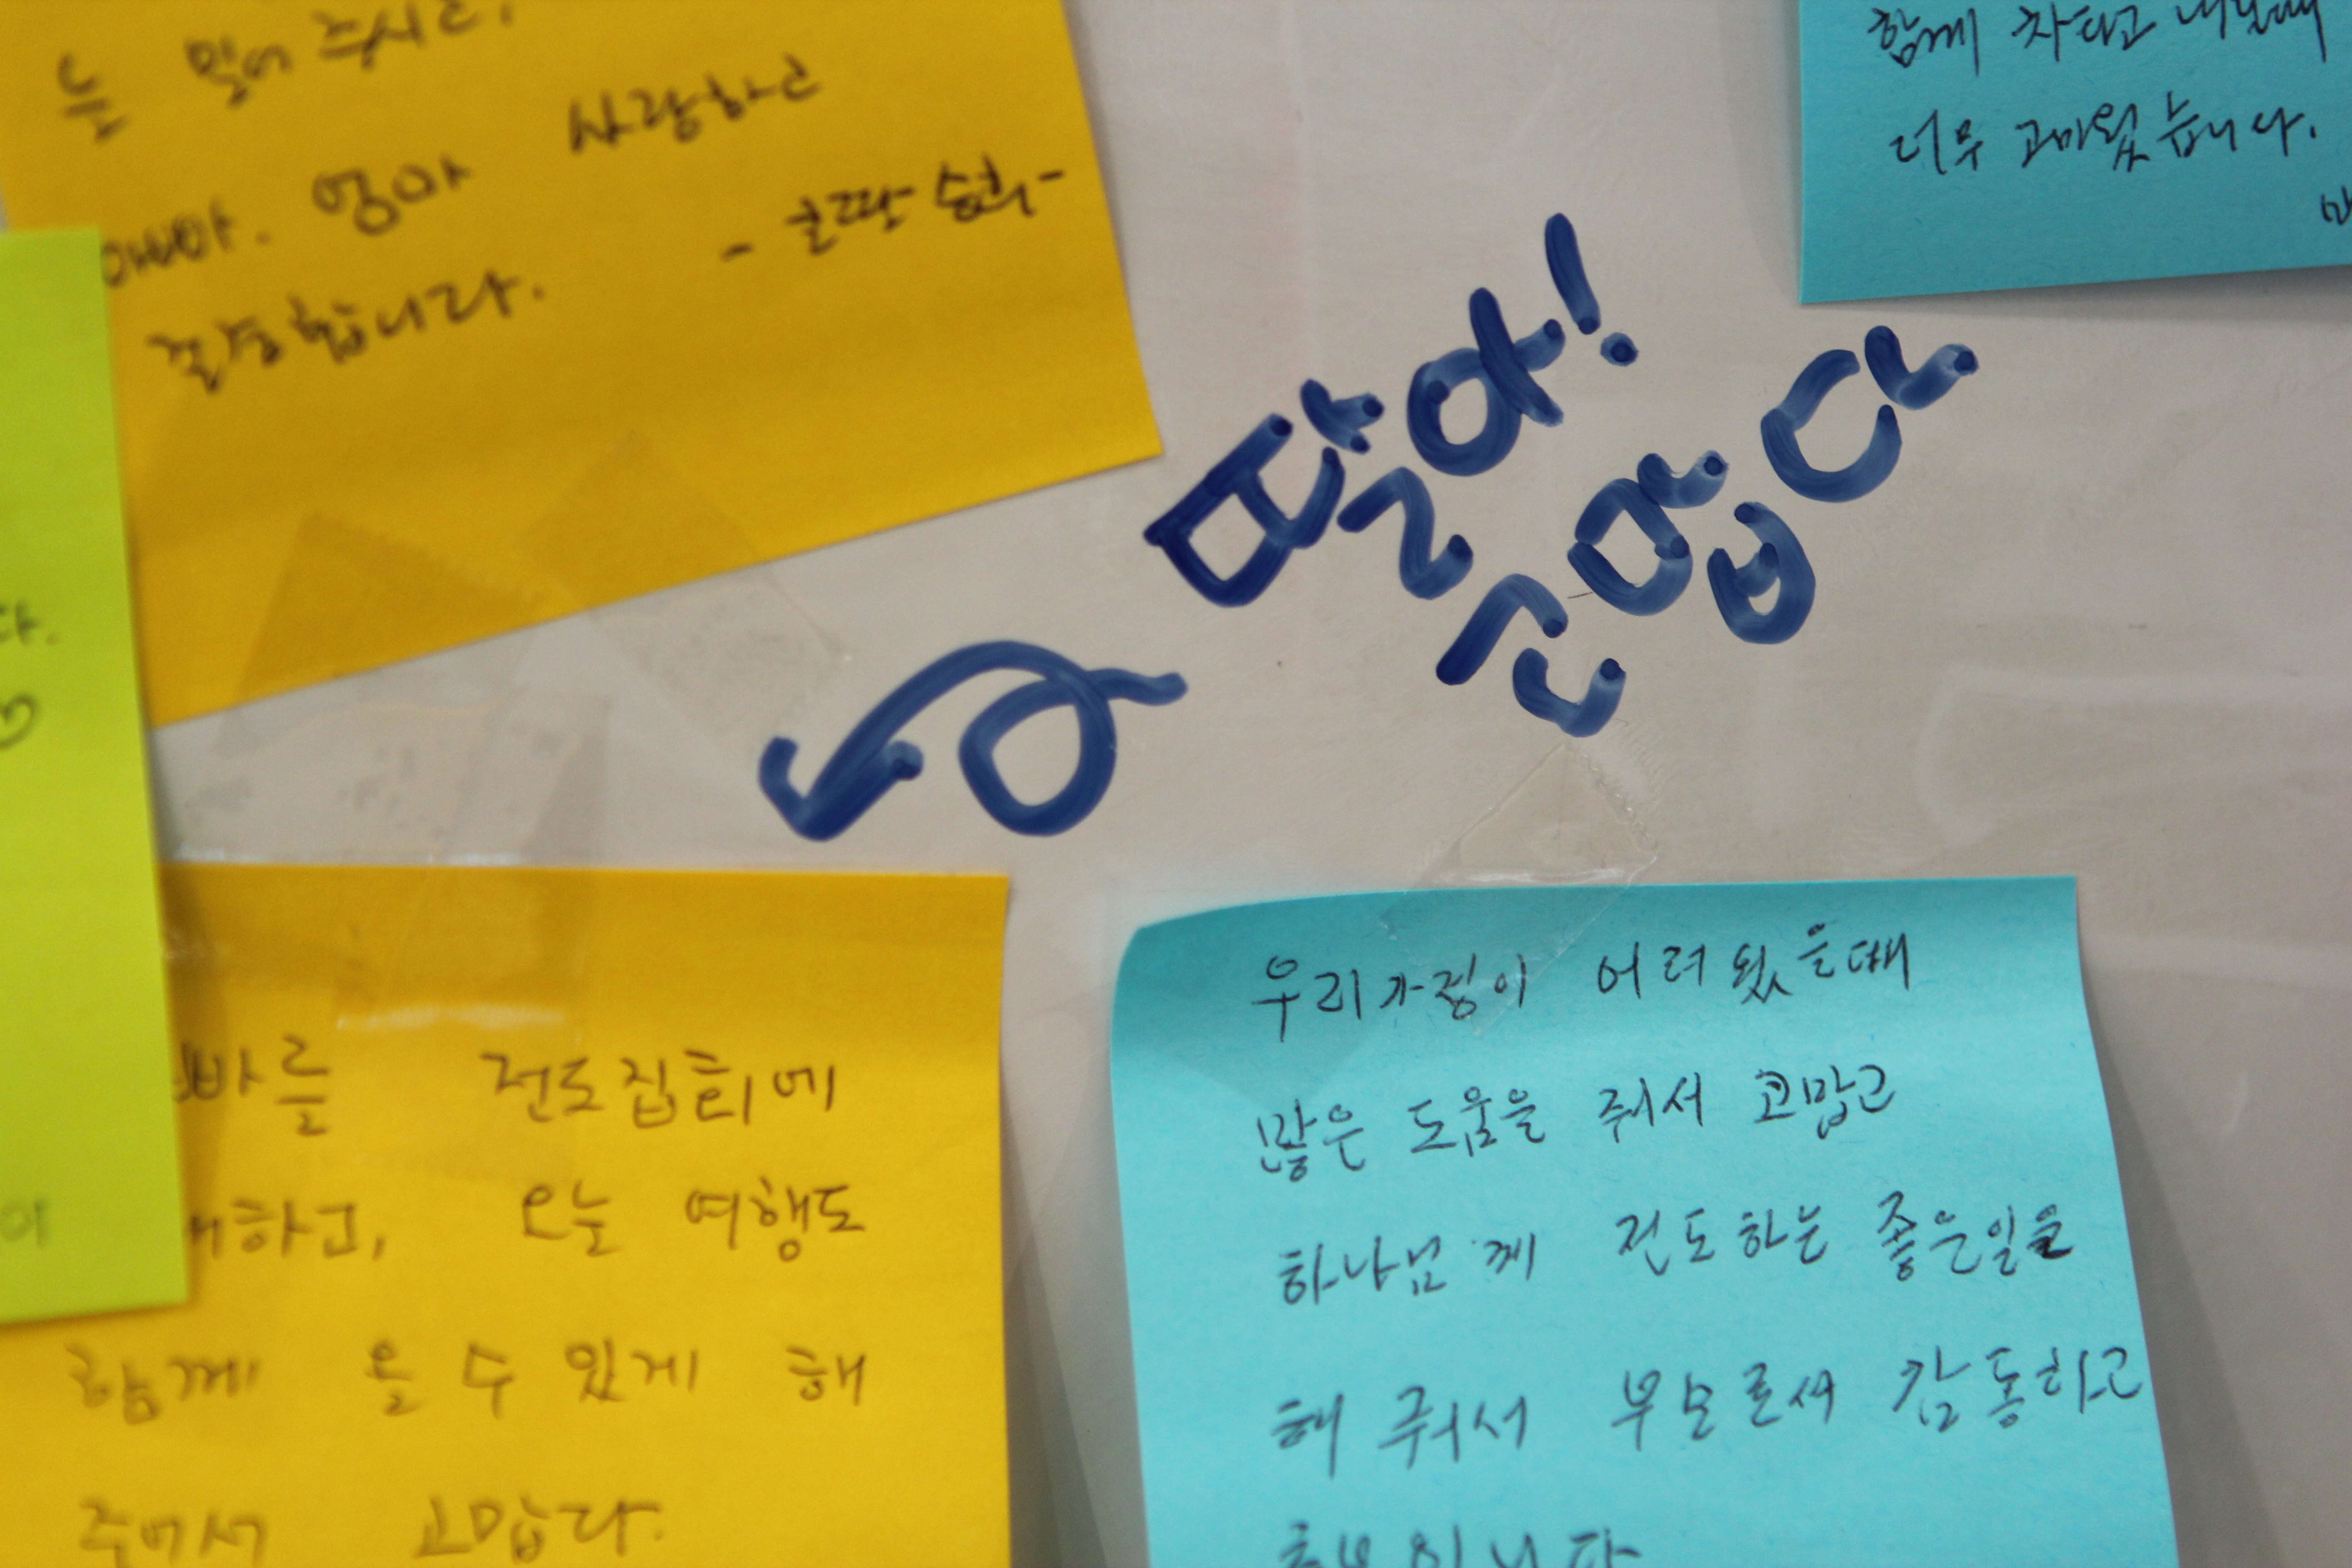 를 밀어 주시고,
아빠. 엄마 사랑하고
존경합니다.
- 큰딸 승희 -
함께 차타고 너눌때
너무 고마웠습니다.
딸아!
고맙다
다.
이
빠를 전도집회에
하고, 오늘 여행도
함께 올 수 있게 해
주어서 고맙다.
우리가정이 어려웠을때
많은 도움을 줘서 고맙고
하나님께 전도하는 좋은일을
해 줘서 부모로써 감동하고
행복합니다